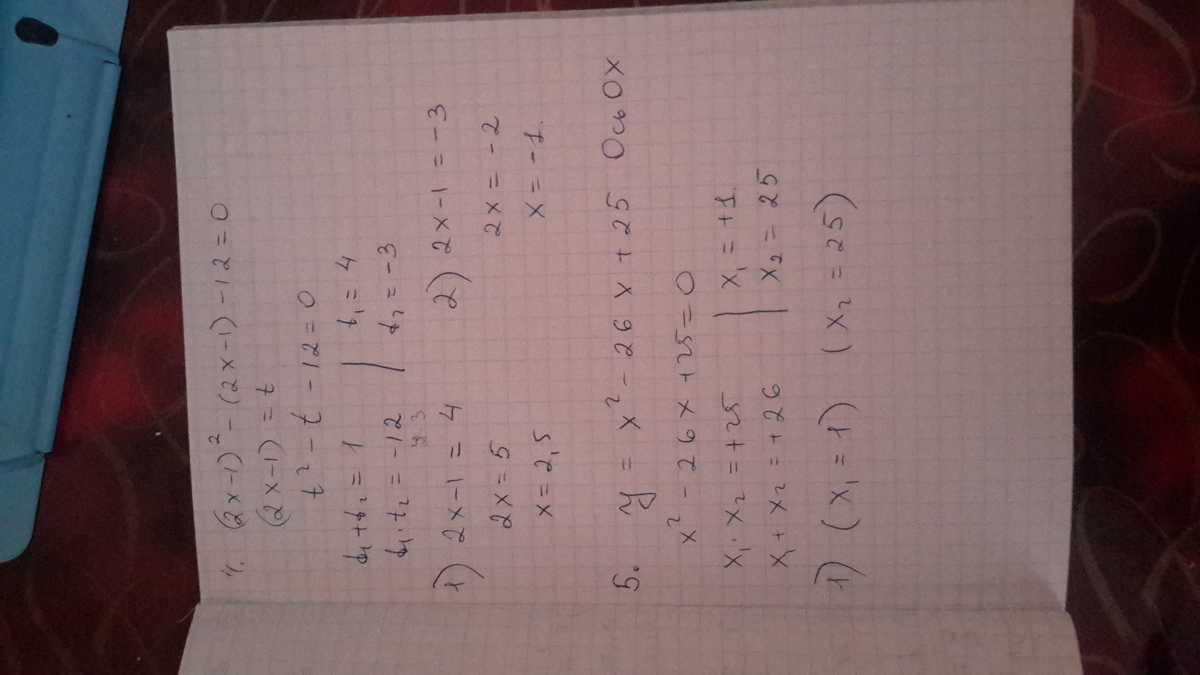 4. (2x-1)² - (2x-1) - 12 = 0
(2x-1) = t
t² - t - 12 = 0
t₁ + t₂ = 1 | t₁ = 4
t₁ · t₂ = -12 | t₂ = -3
1) 2x-1 = 4 2) 2x-1 = -3
2x = 5 2x = -2
x = 2,5 x = -1.
5. y = x² - 26x + 25 Ось Ox
x² - 26x + 25 = 0
x₁ · x₂ = +25 | x₁ = +1.
x₁ + x₂ = +26 | x₂ = 25
1) (x₁ = 1) (x₂ = 25)